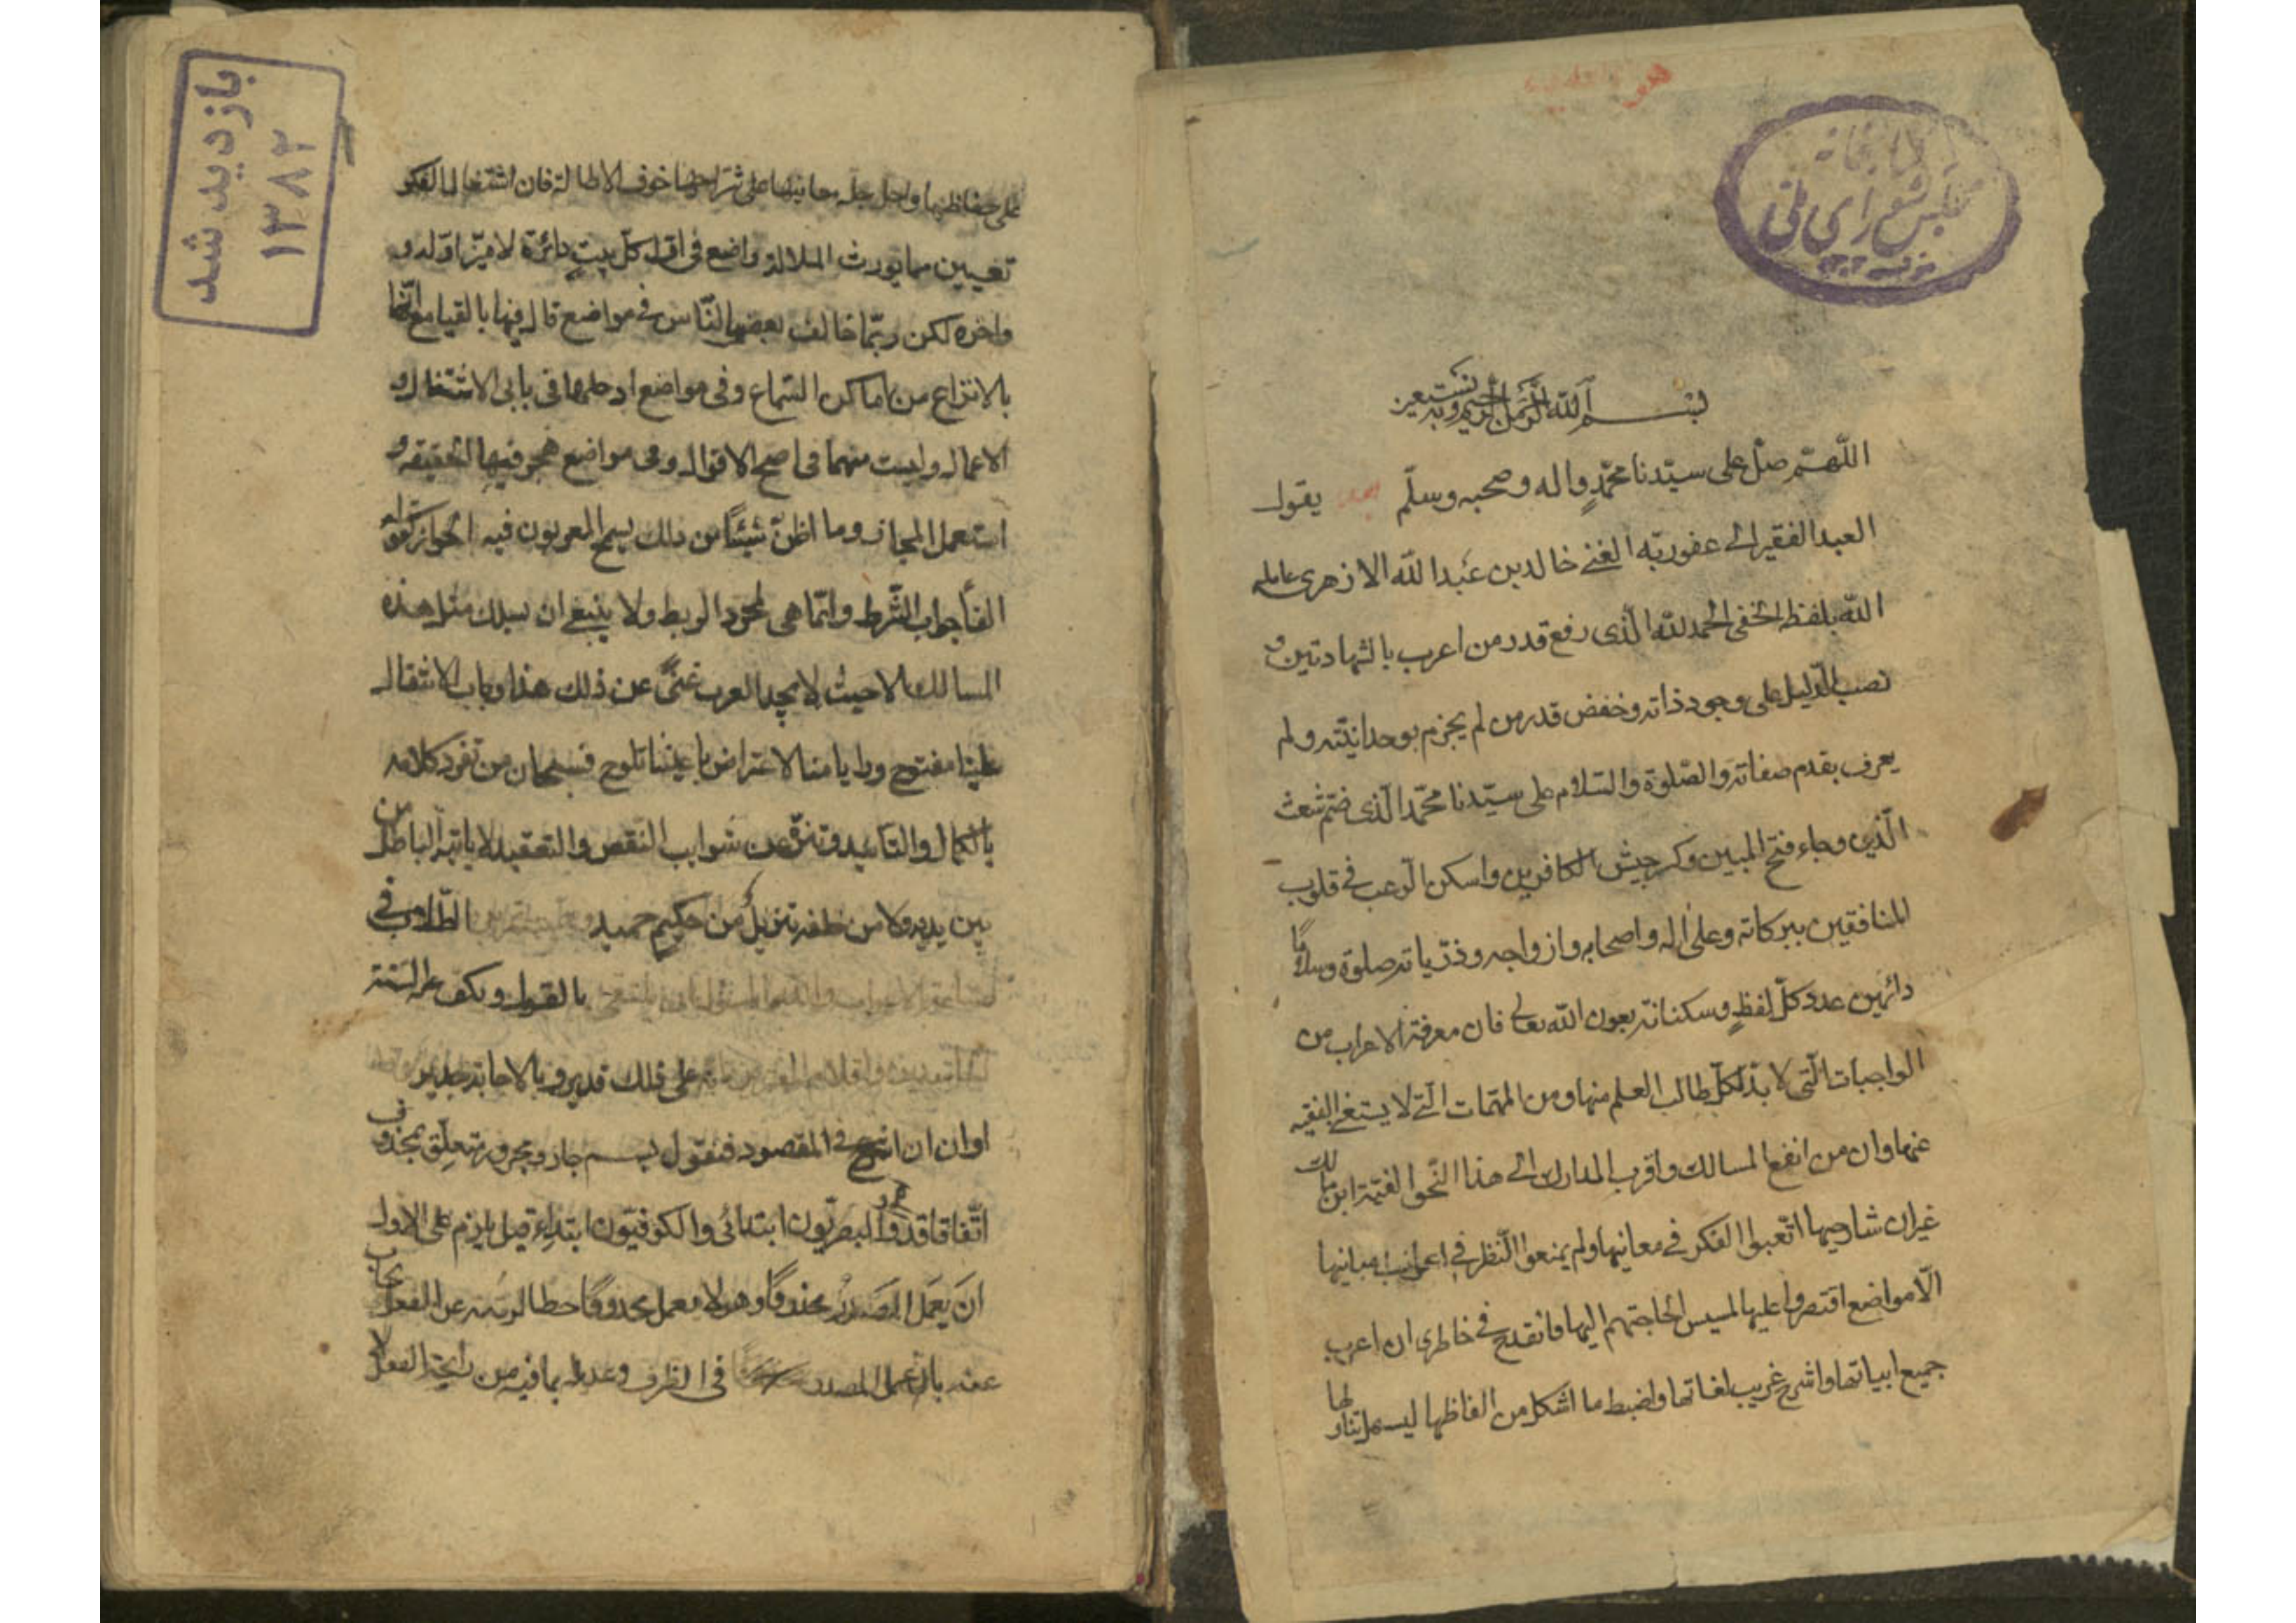 كتابخانه
مجلس شورای ملی
بسم الله الرحمن الرحيم وبه نستعين
اللهم صل على سيدنا محمد واله وصحبه وسلم يقول
العبد الفقير الى عفو ربه الغنى خالد بن عبد الله الازهرى عامله
الله بلفظه الخفى الحمد لله الذى رفع قدر من اعرب بالشهادتين و
نصب الدليل على وجود ذاته وخفض قدر من لم يجزم بوحدانيته ولم
يعرف بقدم صفاته والصلوة والسلام على سيدنا محمد الذى ضم شعث
الذين وجاء فتح المبين وكر جيش الكافرين واسكن الرعب فى قلوب
المنافقين ببركاته وعلى اله واصحابه وازواجه وذرياته صلوة وسلاما
دائمين عدد كل لفظ وسكناته بعون الله تعالى فان معرفة الاعراب من
الواجبات التى لا بد لكل طالب العلم منها ومن المهمات التى لا يستغنى الفقيه
عنها وان من انفع المسالك واقرب المدارك الى هذا النحو الفية ابن مالك
غير ان شارحيها اتعبوا الفكر فى معانيها ولم يمنعوا النظر فى اعراب مبانيها
الا مواضع اقتصروا عليها لمسيس الحاجتهم اليها فانقدح فى خاطرى ان اعرب
جميع ابياتها واشرح غريب لغاتها واضبط ما اشكل من الفاظها ليسهل تناولها
بازدید شد
۱۳۸۲
على حفاظها واحل جله معانيها على شراحها خوف الاطالة فان اشتغال الفكر
تعيين مما يورث الملالة واضع فى اول كل بيت دائرة لاميز اوله و
واخره لكن ربما خالف بعضها الناس فى مواضع قال فيها بالقيام مع انها
بالانتزاع من اماكن السماع وفى مواضع ادخلها فى بابى الاشتغال و
الاعمال وليست منهما فى اصح الاقوال وفى مواضع هجر فيها الحقيقة و
استعمل المجاز وما اظن شيئا من ذلك يسمح المعربون فيه الجواز كقوله
الفا جواب الشرط وانما هى لمجرد الربط ولا ينبغى ان يسلك مثل هذه
المسالك الا حيث لا يجد العرب غنى عن ذلك هذا وباب الانتقال
علينا مفتوح وبدايا منا الاعتراض باعيننا تلوح فسبحان من تفرد كلامه
بالكمال والتاييد وتنزه عن شوايب النقص والتعقيد لا ياتيه الباطل من
بين يديه ولا من خلفه تنزيل من حكيم حميد الطلاب فى
بالقبول ويكف عنه السنة
على ذلك قدير وبالاجابة جدير
اوان ان اشرع فى المقصود فنقول بسم جار ومجرور متعلق بمحذوف
اتفاقا قدره البصريون ابتدائى والكوفيون ابتداء قيل يلزم على الاول
ان يعمل المصدر محذوفا وهو لا يعمل محذوفا حطا لرتبته عن الفعل يجاب
عنه بان عمل المصدر فى الظرف وعديله بما فيه من رايحة الفعل لا